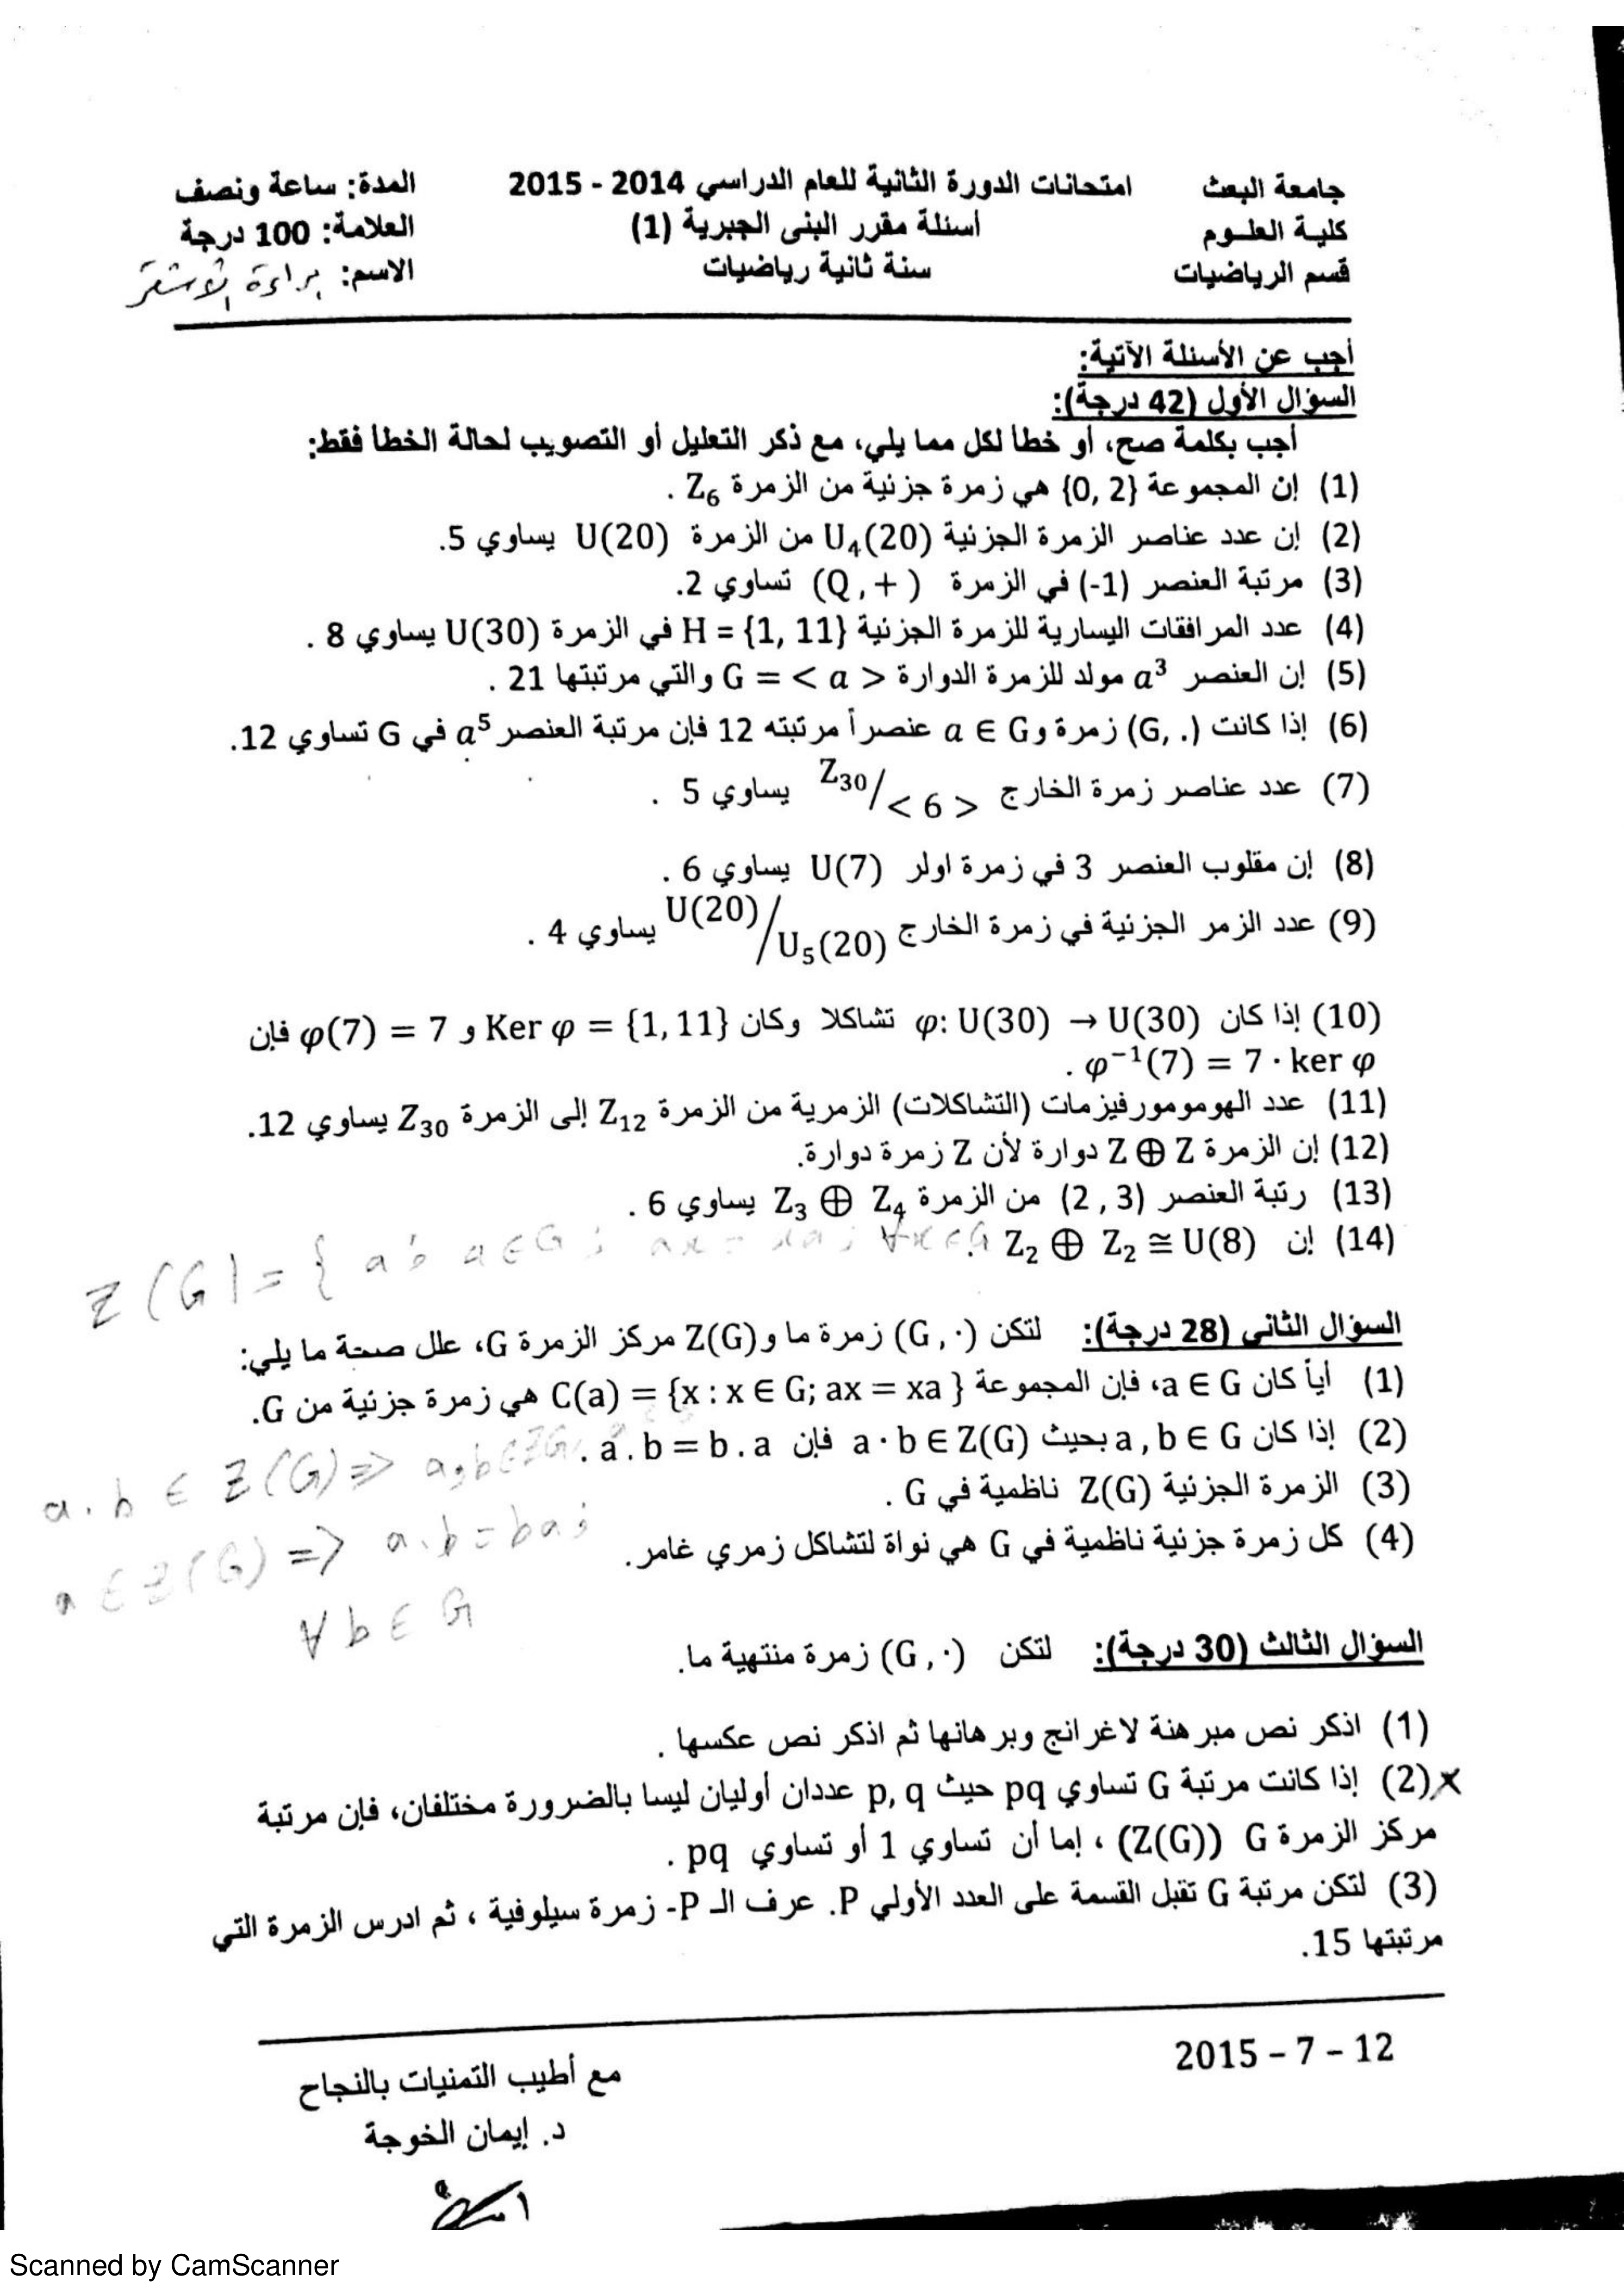 جامعة البعث
كلية العلوم
قسم الرياضيات
امتحانات الدورة الثانية للعام الدراسي 2014 - 2015
أسئلة مقرر البنى الجبرية (1)
سنة ثانية رياضيات
المدة: ساعة ونصف
العلامة: 100 درجة
الاسم: براءة
أجب عن الأسئلة الآتية:
السؤال الأول (42 درجة):
أجب بكلمة صح، أو خطأ لكل مما يلي، مع ذكر التعليل أو التصويب لحالة الخطأ فقط:
(1) إن المجموعة {0, 2} هي زمرة جزئية من الزمرة Z₆ .
(2) إن عدد عناصر الزمرة الجزئية U₄(20) من الزمرة U(20) يساوي 5.
(3) مرتبة العنصر (-1) في الزمرة (Q, +) تساوي 2.
(4) عدد المرافقات اليسارية للزمرة الجزئية H = {1, 11} في الزمرة U(30) يساوي 8 .
(5) إن العنصر a³ مولد للزمرة الدوارة G = < a > والتي مرتبتها 21 .
(6) إذا كانت (G, .) زمرة و a ∈ G عنصراً مرتبته 12 فإن مرتبة العنصر a⁵ في G تساوي 12.
(7) عدد عناصر زمرة الخارج Z₃₀/< 6 > يساوي 5 .
(8) إن مقلوب العنصر 3 في زمرة اولر U(7) يساوي 6 .
(9) عدد الزمر الجزئية في زمرة الخارج U(20)/U₅(20) يساوي 4 .
(10) إذا كان φ: U(30) → U(30) تشاكلا وكان Ker φ = {1, 11} و φ(7) = 7 فإن
φ⁻¹(7) = 7 · ker φ .
(11) عدد الهومومورفيزمات (التشاكلات) الزمرية من الزمرة Z₁₂ إلى الزمرة Z₃₀ يساوي 12.
(12) إن الزمرة Z ⊕ Z دوارة لأن Z زمرة دوارة.
(13) رتبة العنصر (2 , 3) من الزمرة Z₃ ⊕ Z₄ يساوي 6 .
(14) إن Z₂ ⊕ Z₂ ≅ U(8) .
Z(G) = { a : a ∈ G ; ax = xa ; ∀x ∈ G
السؤال الثاني (28 درجة): لتكن (G, ·) زمرة ما و Z(G) مركز الزمرة G، علل صحة ما يلي:
(1) أياً كان a ∈ G، فإن المجموعة C(a) = {x : x ∈ G; ax = xa } هي زمرة جزئية من G.
(2) إذا كان a , b ∈ G بحيث a · b ∈ Z(G) فإن a . b = b . a .
a . b ∈ Z(G) ⇒ a, b ∈ Z(G)
(3) الزمرة الجزئية Z(G) ناظمية في G .
a ∈ Z(G) ⇒ a.b = ba ;
(4) كل زمرة جزئية ناظمية في G هي نواة لتشاكل زمري غامر.
∀ b ∈ G
السؤال الثالث (30 درجة): لتكن (G, ·) زمرة منتهية ما.
(1) اذكر نص مبرهنة لاغرانج وبرهانها ثم اذكر نص عكسها .
x (2) إذا كانت مرتبة G تساوي pq حيث p, q عددان أوليان ليسا بالضرورة مختلفان، فإن مرتبة
مركز الزمرة G (Z(G)) ، إما أن تساوي 1 أو تساوي pq .
(3) لتكن مرتبة G تقبل القسمة على العدد الأولي P. عرف الـ P- زمرة سيلوفية ، ثم ادرس الزمرة التي
مرتبتها 15.
12 - 7 - 2015
مع أطيب التمنيات بالنجاح
د. إيمان الخوجة
Scanned by CamScanner